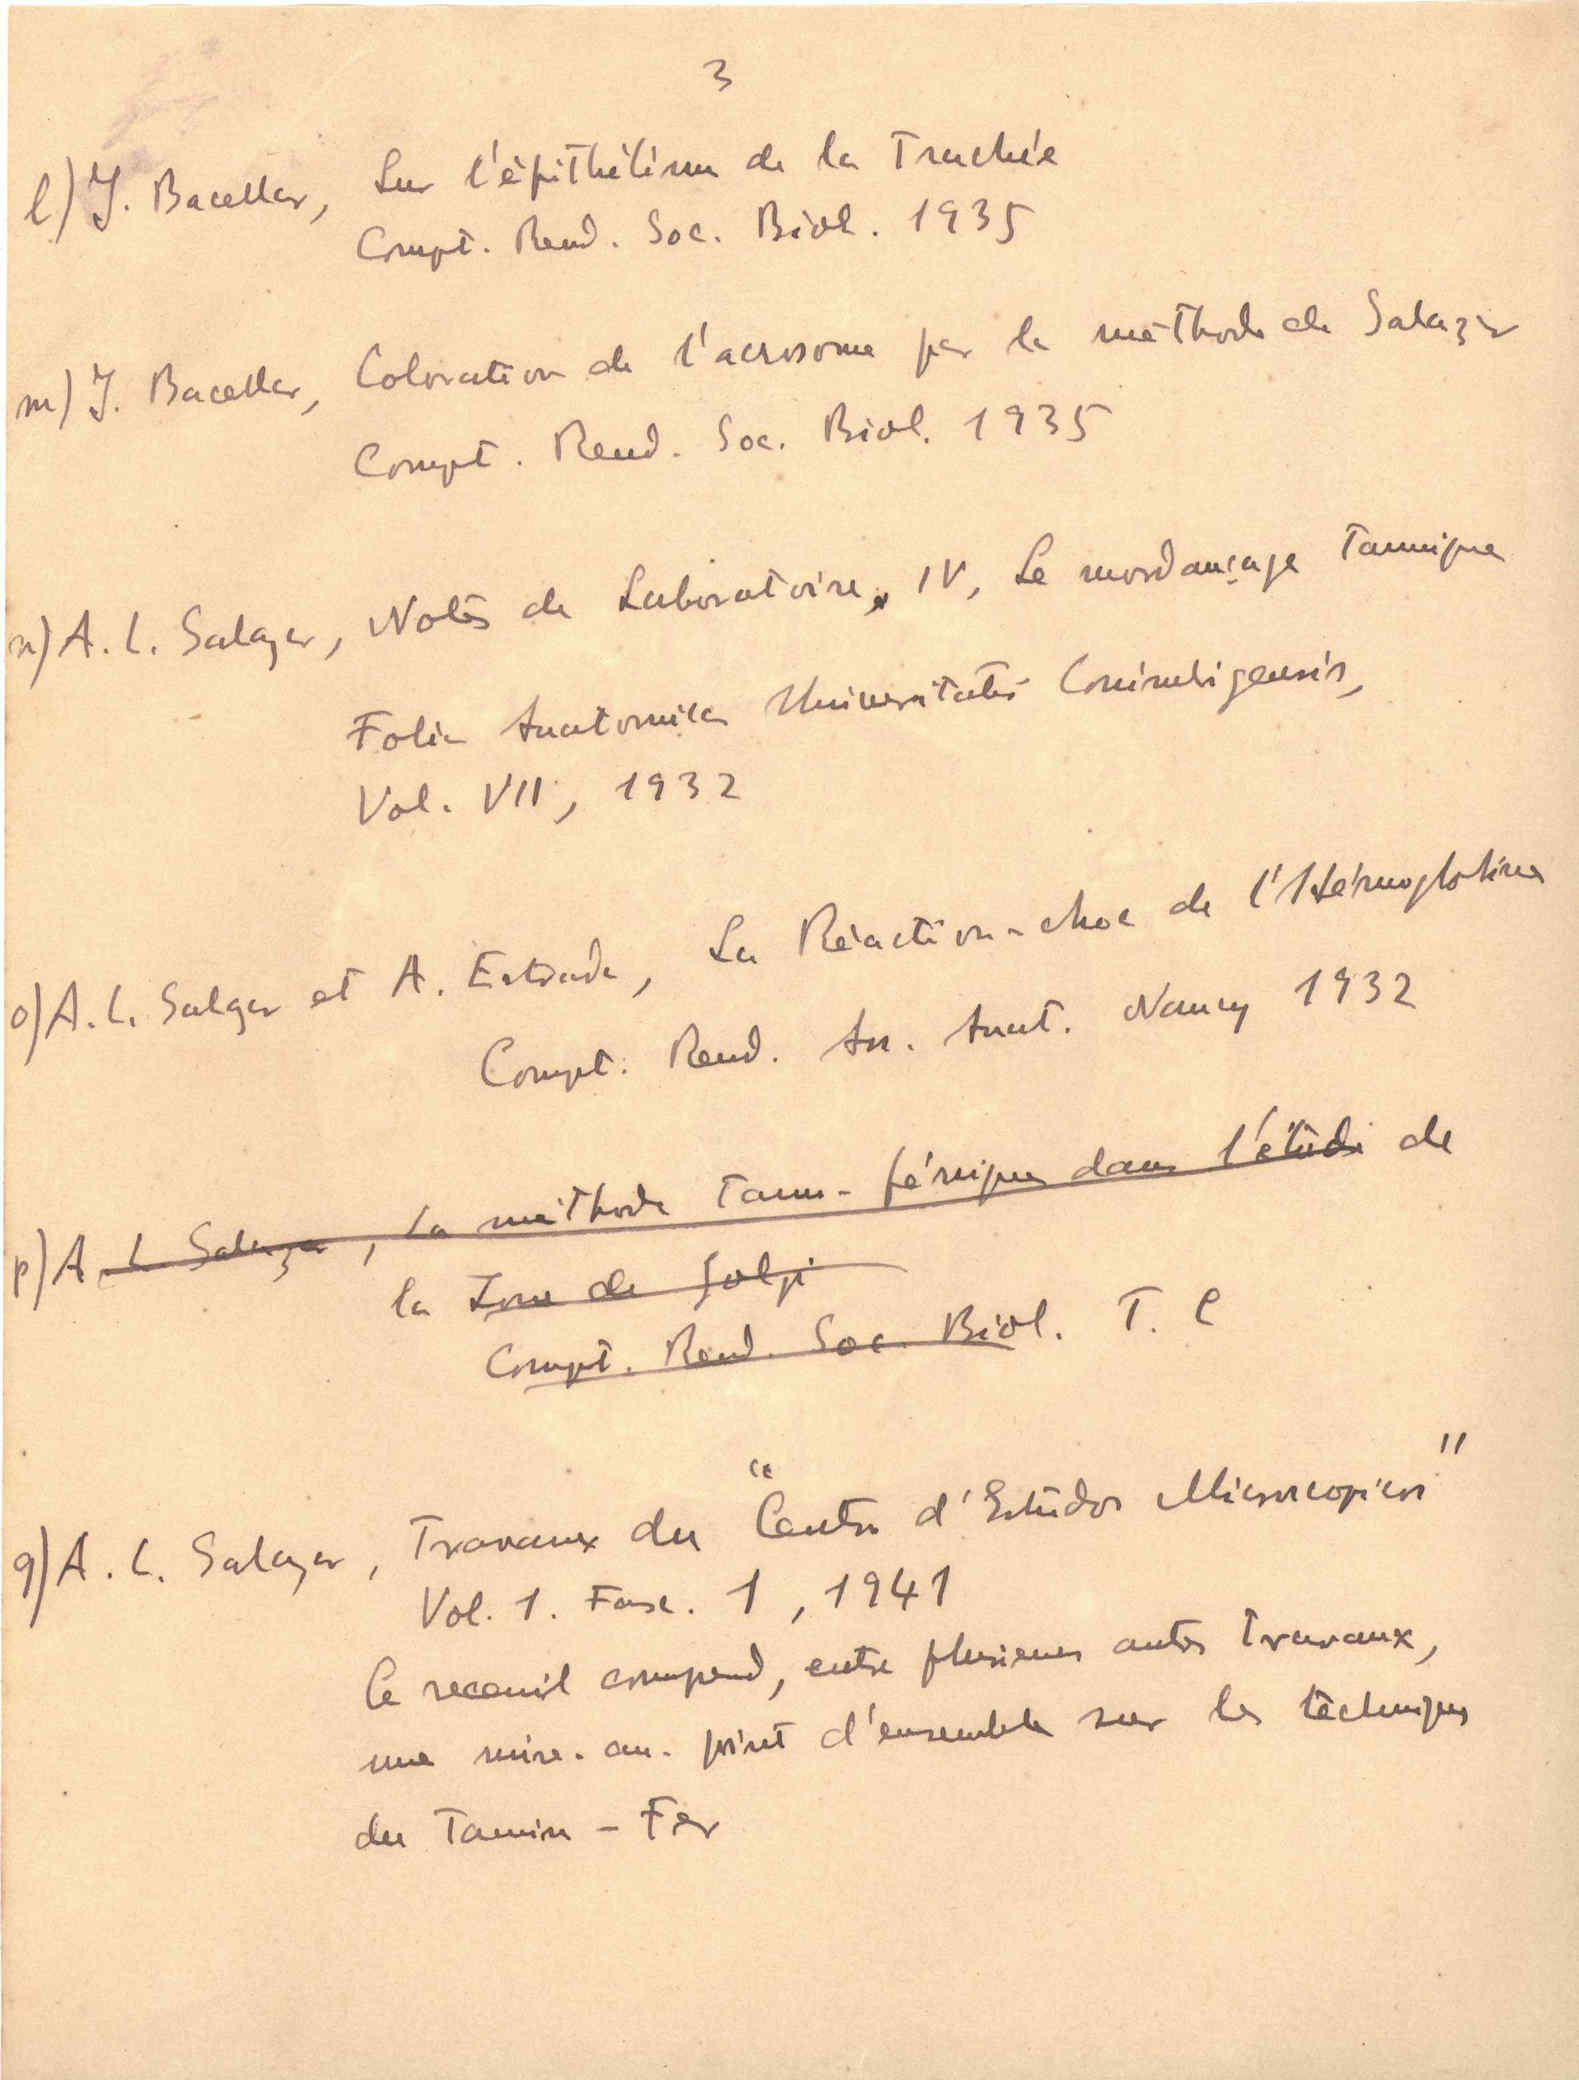 3
l) J. Bacellar, Sur l'épithélium de la Trachée
Compt. Rend. Soc. Biol. 1935
m) J. Bacellar, Coloration de l'acrosome par la méthode de Salazar
Compt. Rend. Soc. Biol. 1935
n) A. L. Salazar, Notes de Laboratoire, IV, Le mordançage Tannique
Folia Anatomica Universitatis Conimbrigensis,
Vol. VII, 1932
o) A. L. Salazar et A. Estrada, La Réaction-choc de l'Hémoglobine
Compt. Rend. An. Anat. Nancy 1932
p) A L Salazar, La méthode Tanno-férrique dans l'étude de
la Zone de Golgi
Compt. Rend. Soc. Biol. T. C
q) A. L. Salazar, Travaux du "Centro d'Estudos Microscopicos"
Vol. 1. Fasc. 1, 1941
Ce receuil comprend, entre plusieurs autres Travaux,
une mise-au-point d'ensemble sur les techniques
du Tannin - Fer